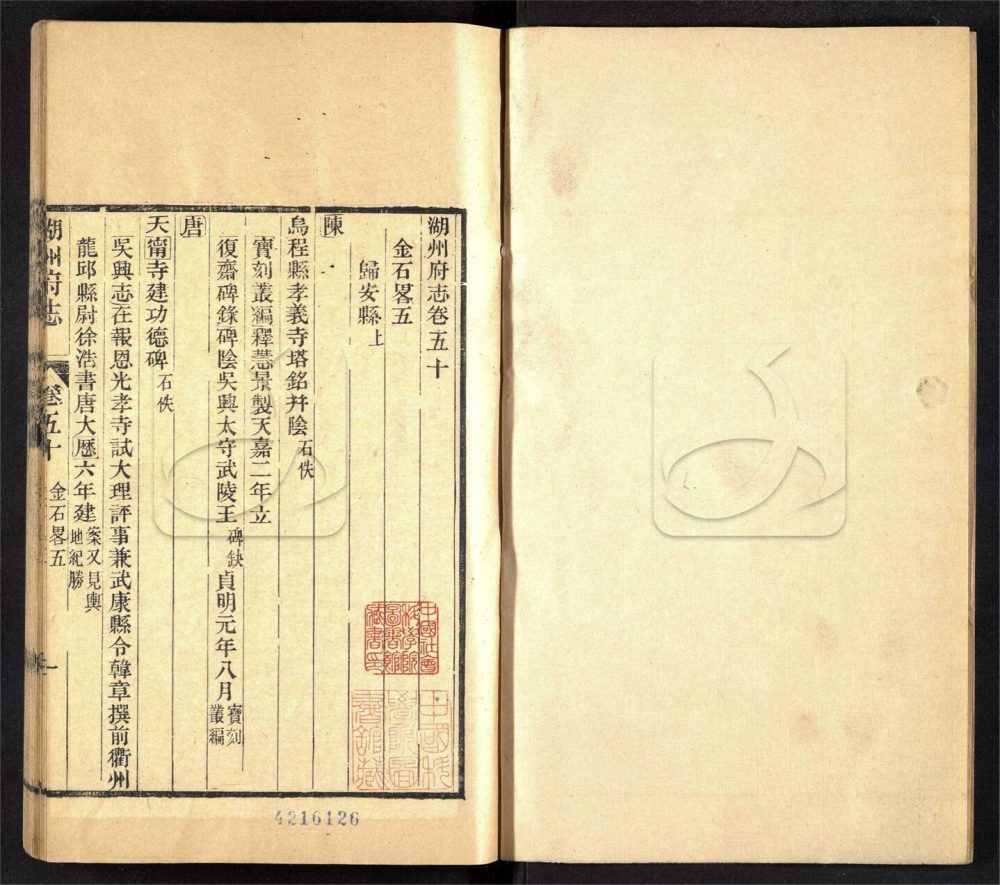 湖州府志卷五十
金石畧五
歸安縣上
陳
烏程縣孝義寺塔銘幷陰石佚
寶刻叢編釋慧景製天嘉二年立
復齋碑錄碑陰吳興太守武陵王碑缺貞明元年八月寶刻叢編
唐
天甯寺建功德碑石佚
吳興志在報恩光孝寺試大理評事兼武康縣令韓章撰前衢州
龍邱縣尉徐浩書唐大曆六年建案又見輿地紀勝
湖州府志
卷五十
金石畧五
一
中國社會科學院圖書館藏書印
中國科學院圖書館藏
4216126